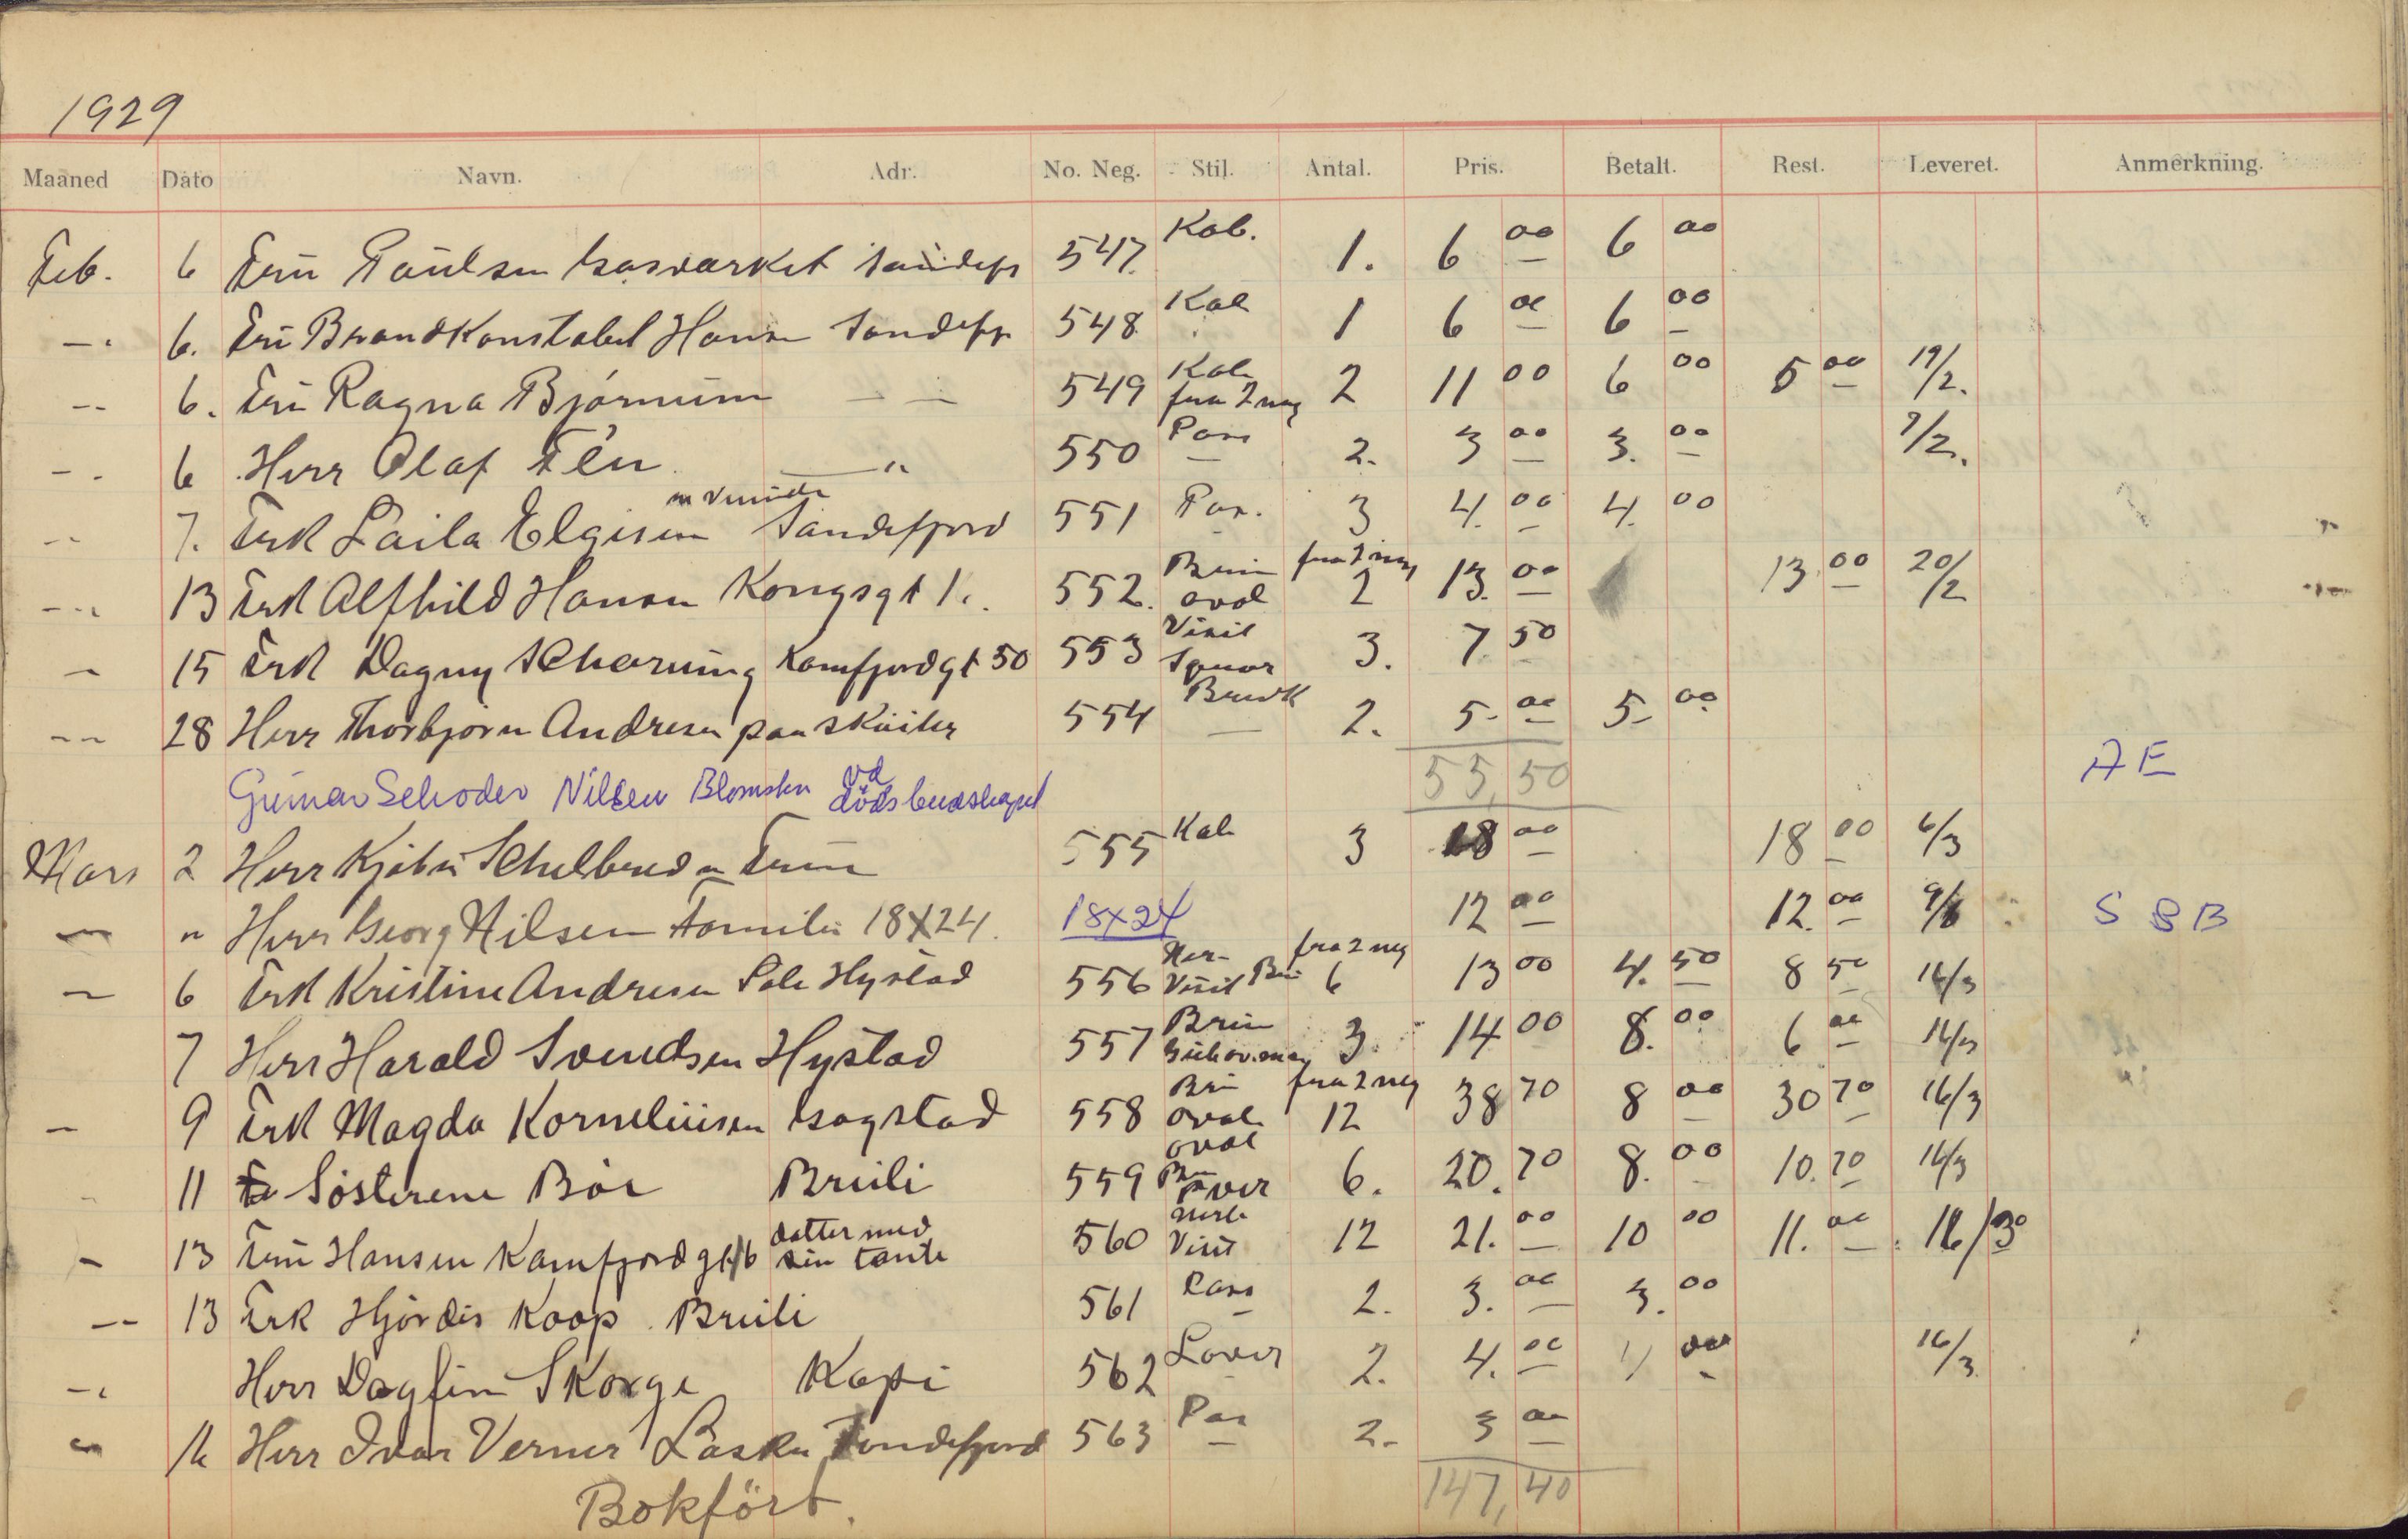 1929
Maaned Dato Navn. Adr. No. Neg. Stil. Antal. Pris. Betalt. Rest. Leveret. Anmerkning.
Feb. 6 Fru Paulsen Gasværket Sandefj 547. Kab. 1. 6 00 6 00
6. Fru Brandkonstabel Hansen Sandefj 548 Kab 1 6 00 6 00
6. Fru Ragna Bjørnum 549 Kab fra 2 neg 2 11 00 6 00 5 00 19/2.
6 Herr Olaf Fén " 550 Pass 2. 3 00 3. 00 7/2.
7. Frk Laila Elgesem m venninde Sandefjord 551 Pas. 3 4. 00 4. 00
13 Frk Alfhild Hansen Kongsgt 1. 552. Brun oval fra 2 neg 2 13. 00 13 00 20/2
15 Frk Dagny Scharning Kamfjordgt 50 553 Visit 3. 7 50
28 Herr Thorbjørn Andresen paa skøiter 554 Brevk 2. 5. 00 5. 00
55,50
Gunnar Schoder Nilsen Blomsten vd dødsbudskapet AE
Mars 2 Herr Kjøbm Schelbred m Frue 555 Kab 3 18 00 18 00 6/3
" Herr Georg Nilsen Familie 18X24. 18x24 12 00 12. 00 S B B
6 Frk Kristine Andresen Hystad 556 Visit Brun fra 2 neg 6 13 00 4. 50 8 50 16/3
7 Herr Harald Svendsen Hystad 557 Brun 3. 14 00 8. 00 6 00 16/3
9 Frk Magda Korneliusen Gogstad 558 Brun oval fra 2 neg 12 38 70 8 00 30 70 16/3
11 Søsterene Bøe Bruili 559 oval 6. 20. 70 8. 00 10. 70 16/3
13 Fru Hansen Kamfjordgt 16 datter med sin tante 560 Visit 12 21. 00 10 00 11. 00 16/3
13 Frk Hjørdis Koop Bruili 561 Pass 2. 3. 00 3. 00
Herr Dagfin Skorge Kopi 562 2. 4. 00 4 00 16/3
Herr Ivar Verner Laskn Sandefjord 563 Pas 2. 3 00
147,40
Bokført.